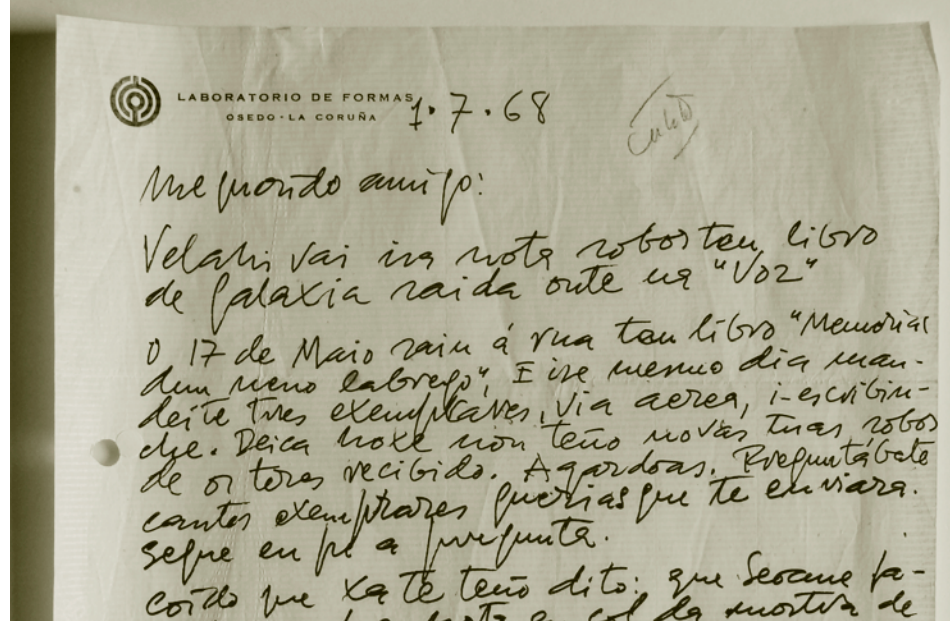 LABORATORIO DE FORMAS
OSEDO · LA CORUÑA
1·7·68
Meu querido amigo:
Velahi vai esa nota sobor teu libro
de Galaxia saida onte na "Voz"
O 17 de Maio saiu á rua teu libro "Memorias
dun neno labrego", E ise mesmo dia man-
deite tres exemplares, via aerea, i-escribin-
che. Deica hoxe non teño novas tuas sobor
de os teres recibido. Agardoas. Preguntábate
cantos exemplares querias que te enviara.
Segue en pé a pregunta.
coido que xa te teño dito: que Seoane fa-
da mostra de